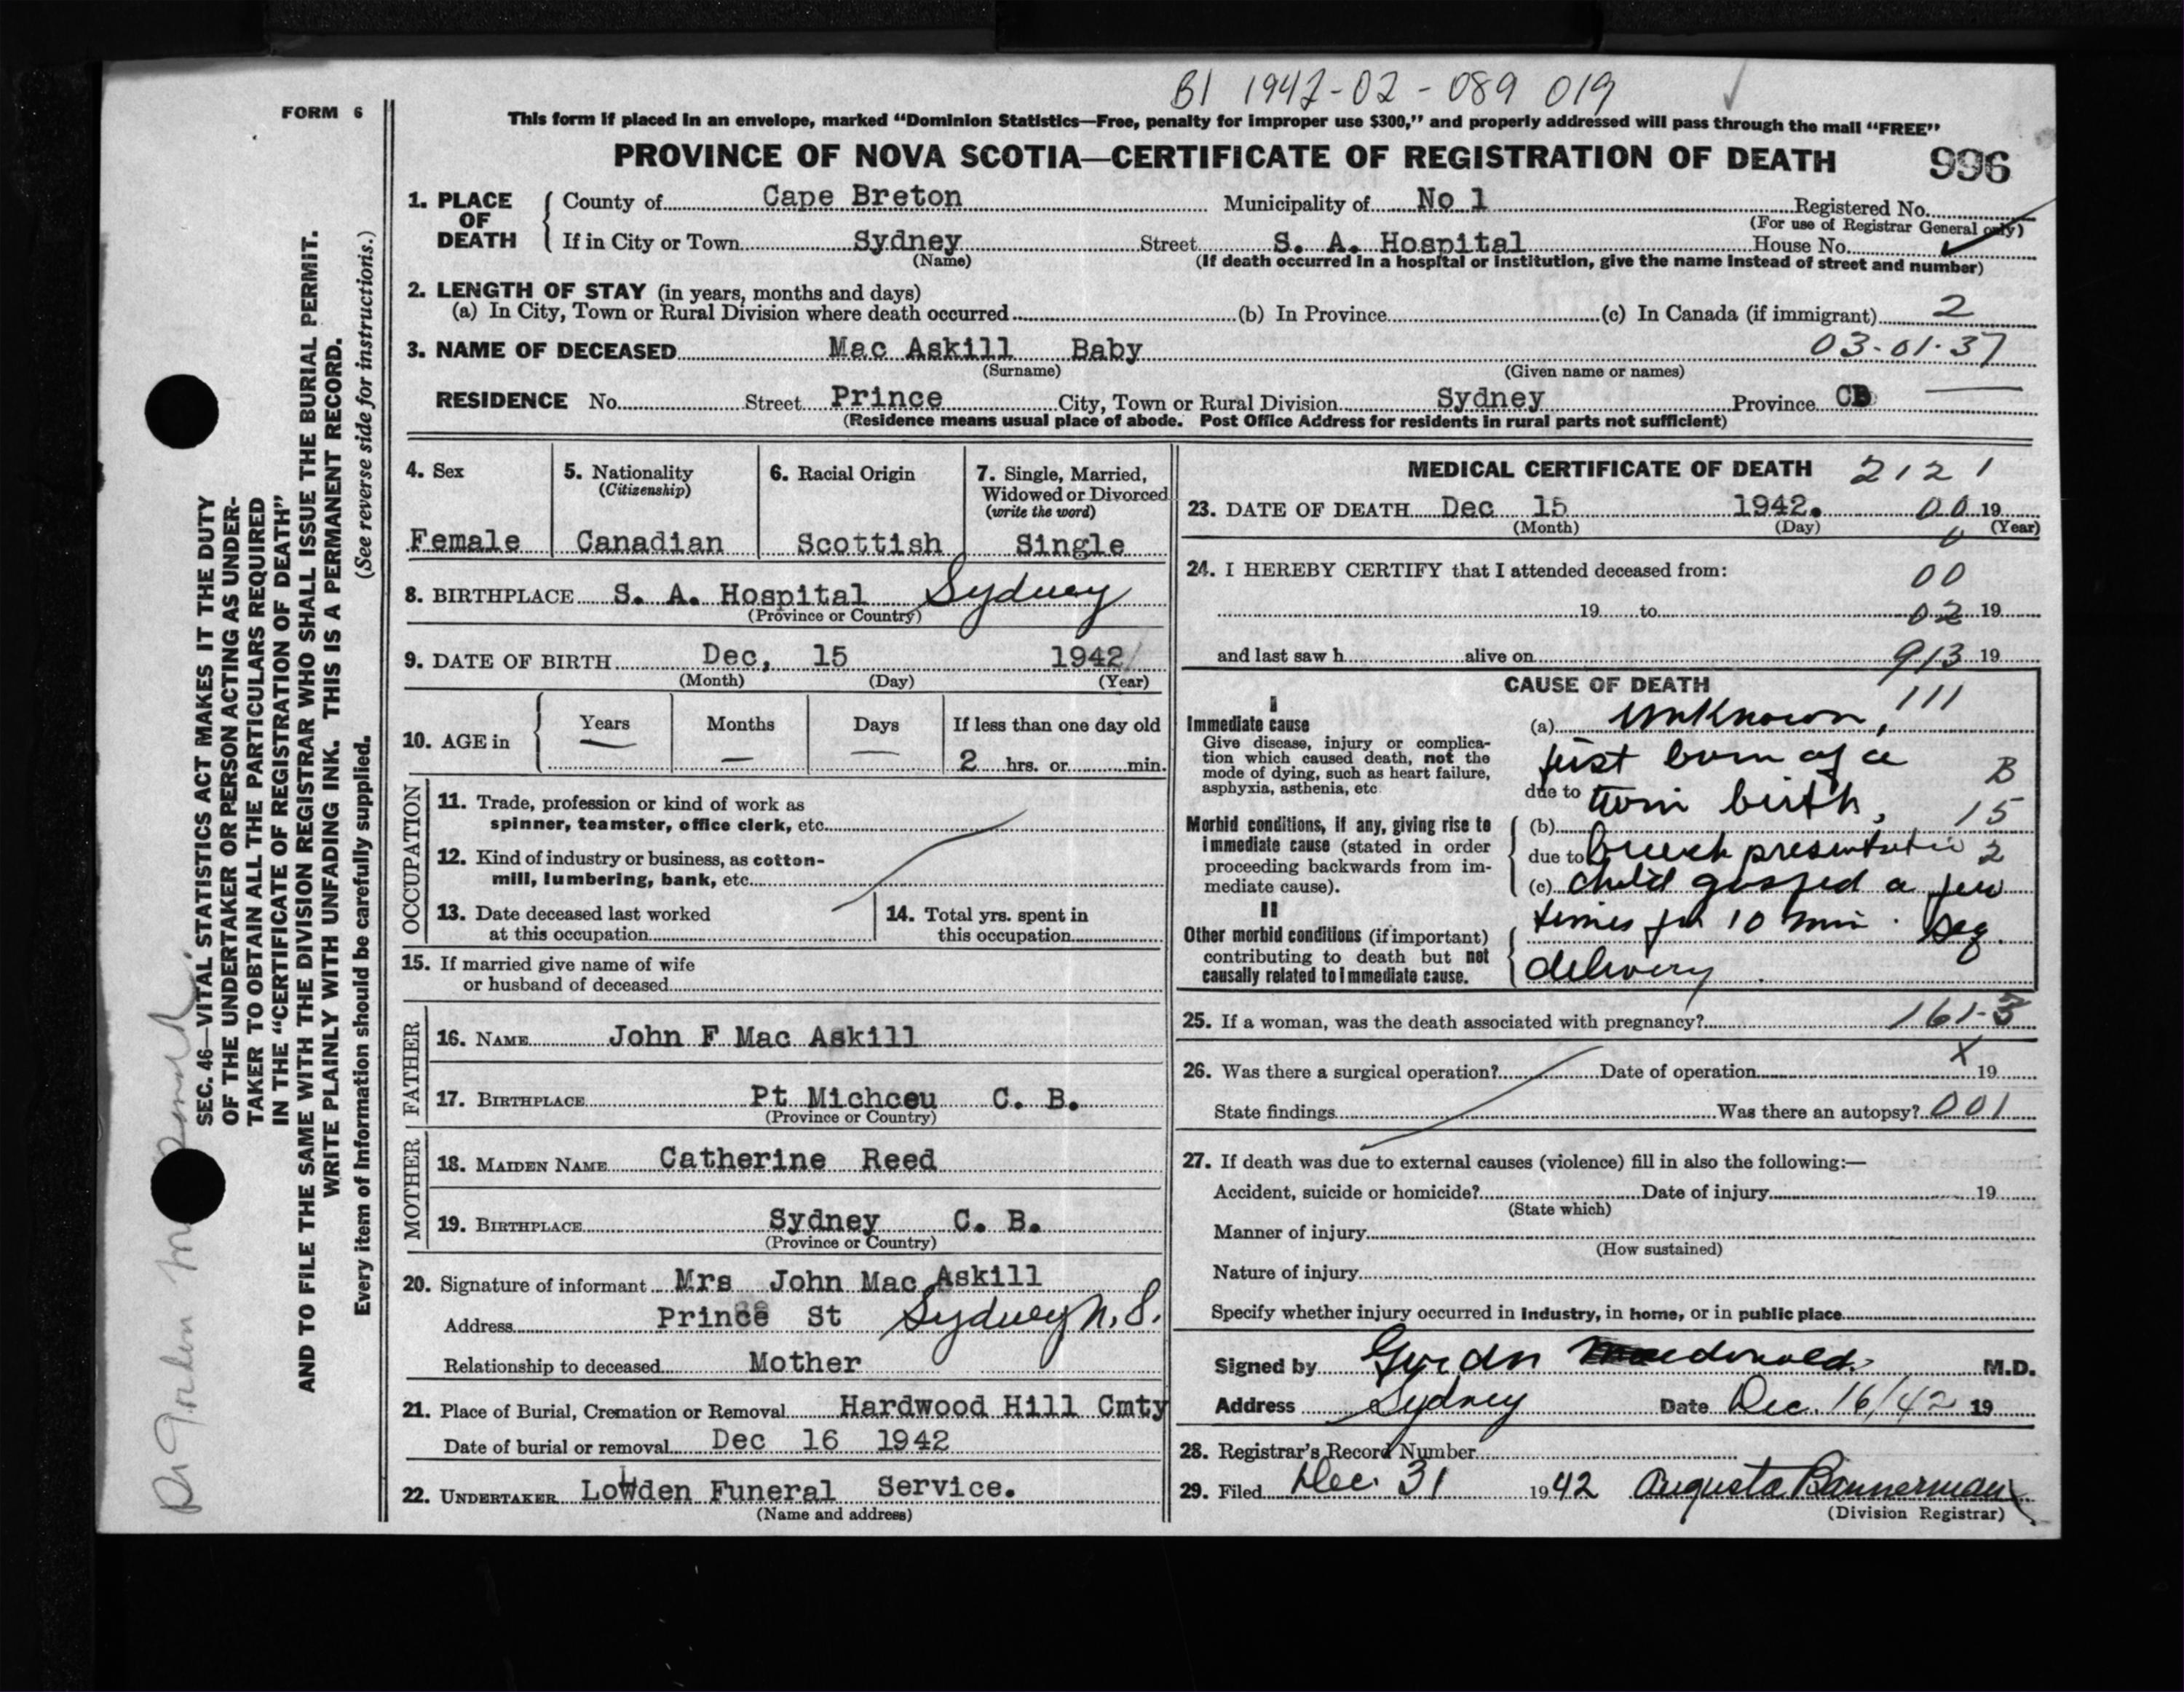 B1 1942-02-089 019
FORM 6
This form if placed in an envelope, marked “Dominion Statistics—Free, penalty for improper use $300,” and properly addressed will pass through the mail “FREE”
PROVINCE OF NOVA SCOTIA—CERTIFICATE OF REGISTRATION OF DEATH 996
1. PLACE OF DEATH
County of Cape Breton Municipality of No 1 Registered No.
(For use of Registrar General only)
If in City or Town Sydney Street S. A. Hospital House No.
(Name) (If death occurred in a hospital or institution, give the name instead of street and number)
2. LENGTH OF STAY (in years, months and days)
(a) In City, Town or Rural Division where death occurred (b) In Province (c) In Canada (if immigrant) 2
3. NAME OF DECEASED Mac Askill Baby 03-01-37
(Surname) (Given name or names)
RESIDENCE No. Street Prince City, Town or Rural Division Sydney Province CB
(Residence means usual place of abode. Post Office Address for residents in rural parts not sufficient)
4. Sex
Female
5. Nationality
(Citizenship)
Canadian
6. Racial Origin
Scottish
7. Single, Married,
Widowed or Divorced
(write the word)
Single
8. BIRTHPLACE S. A. Hospital Sydney
(Province or Country)
9. DATE OF BIRTH Dec, 15 1942
(Month) (Day) (Year)
10. AGE in Years Months Days If less than one day old
— — — 2 hrs. or min.
OCCUPATION
11. Trade, profession or kind of work as
spinner, teamster, office clerk, etc.
12. Kind of industry or business, as cotton-
mill, lumbering, bank, etc.
13. Date deceased last worked
at this occupation
14. Total yrs. spent in
this occupation
15. If married give name of wife
or husband of deceased
FATHER
16. NAME John F Mac Askill
17. BIRTHPLACE Pt Michceu C. B.
(Province or Country)
MOTHER
18. MAIDEN NAME Catherine Reed
19. BIRTHPLACE Sydney C. B.
(Province or Country)
20. Signature of informant Mrs John Mac Askill
Address Prince St Sydney N. S.
Relationship to deceased Mother
21. Place of Burial, Cremation or Removal Hardwood Hill Cmty
Date of burial or removal Dec 16 1942
22. UNDERTAKER Lowden Funeral Service.
(Name and address)
MEDICAL CERTIFICATE OF DEATH 2121
23. DATE OF DEATH Dec 15 1942. 00 19
(Month) (Day) (Year)
24. I HEREBY CERTIFY that I attended deceased from: 00
19 to 02 19
and last saw h alive on 913 19
CAUSE OF DEATH
I
Immediate cause
Give disease, injury or complica-
tion which caused death, not the
mode of dying, such as heart failure,
asphyxia, asthenia, etc.
Morbid conditions, if any, giving rise to
immediate cause (stated in order
proceeding backwards from im-
mediate cause).
II
Other morbid conditions (if important)
contributing to death but not
causally related to immediate cause.
(a) Unknown, 111
just born of a B
due to twin birth, 15
(b)
due to breech presentation 2
(c) child gasped a few
times for 10 min.
delivery.
25. If a woman, was the death associated with pregnancy? 161-5
x
26. Was there a surgical operation? Date of operation 19
State findings Was there an autopsy? 001
27. If death was due to external causes (violence) fill in also the following:—
Accident, suicide or homicide? Date of injury 19
(State which)
Manner of injury
(How sustained)
Nature of injury
Specify whether injury occurred in industry, in home, or in public place
Signed by Gordon Macdonald M.D.
Address Sydney Date Dec. 16/42 19
28. Registrar's Record Number
29. Filed Dec. 31 1942 Augusta Bannerman
(Division Registrar)
SEC. 46—VITAL STATISTICS ACT MAKES IT THE DUTY
OF THE UNDERTAKER OR PERSON ACTING AS UNDER-
TAKER TO OBTAIN ALL THE PARTICULARS REQUIRED
IN THE “CERTIFICATE OF REGISTRATION OF DEATH”
AND TO FILE THE SAME WITH THE DIVISION REGISTRAR WHO SHALL ISSUE THE BURIAL PERMIT.
WRITE PLAINLY WITH UNFADING INK. THIS IS A PERMANENT RECORD.
Every item of information should be carefully supplied. (See reverse side for instructions.)
Dr Gordon